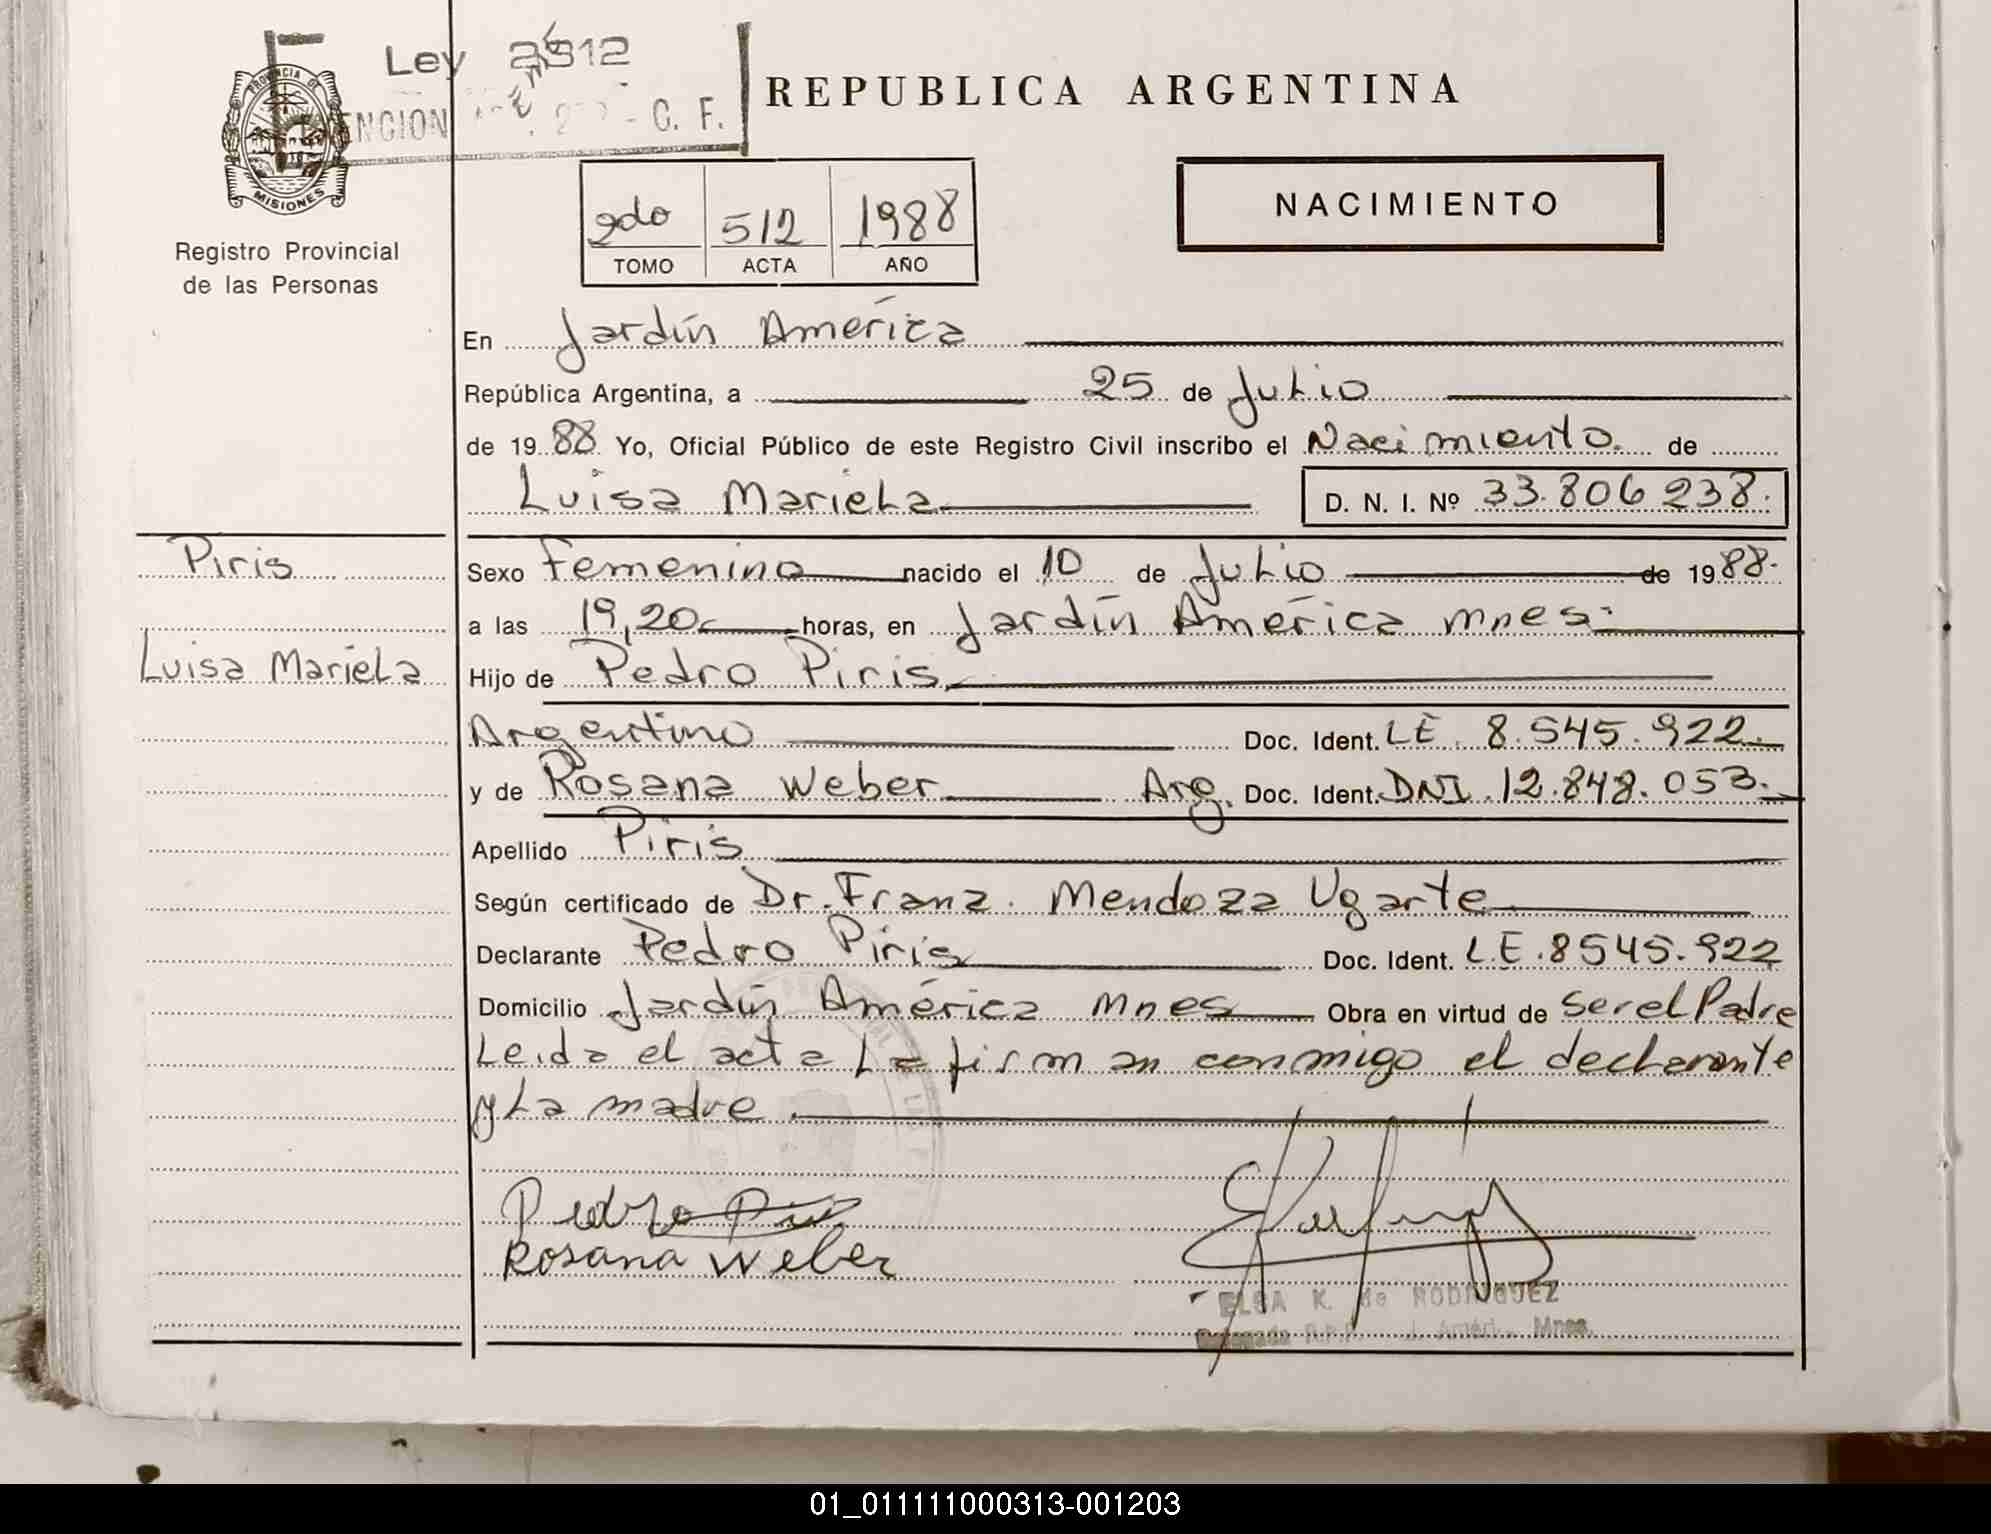 Ley 2912
REPUBLICA ARGENTINA
PROVINCIA DE
MISIONES
C. F.
NACIMIENTO
2do 512 1988
TOMO ACTA AÑO
Registro Provincial
de las Personas
En Jardín América
República Argentina, a 25 de Julio
de 19 88 Yo, Oficial Público de este Registro Civil inscribo el Nacimiento de
Luisa Mariela D. N. I. Nº 33.806 238.
Piris
Luisa Mariela
Sexo Femenino nacido el 10 de Julio de 19 88.
a las 19,20 horas, en Jardín América Mnes.
Hijo de Pedro Piris
Argentino Doc. Ident. LE. 8.545.922.
y de Rosana Weber Arg. Doc. Ident. DNI 12.848.053.
Apellido Piris
Según certificado de Dr. Franz Mendoza Ugarte
Declarante Pedro Piris Doc. Ident. L.E. 8545.922
Domicilio Jardín América Mnes Obra en virtud de Ser el Padre
Leida el acta la firman conmigo el declarante
y la madre
Pedro Piris
Rosana Weber
ELSA K. de RODRIGUEZ
Delegada R.P.P. J. Amér. Mnes.
01_011111000313-001203